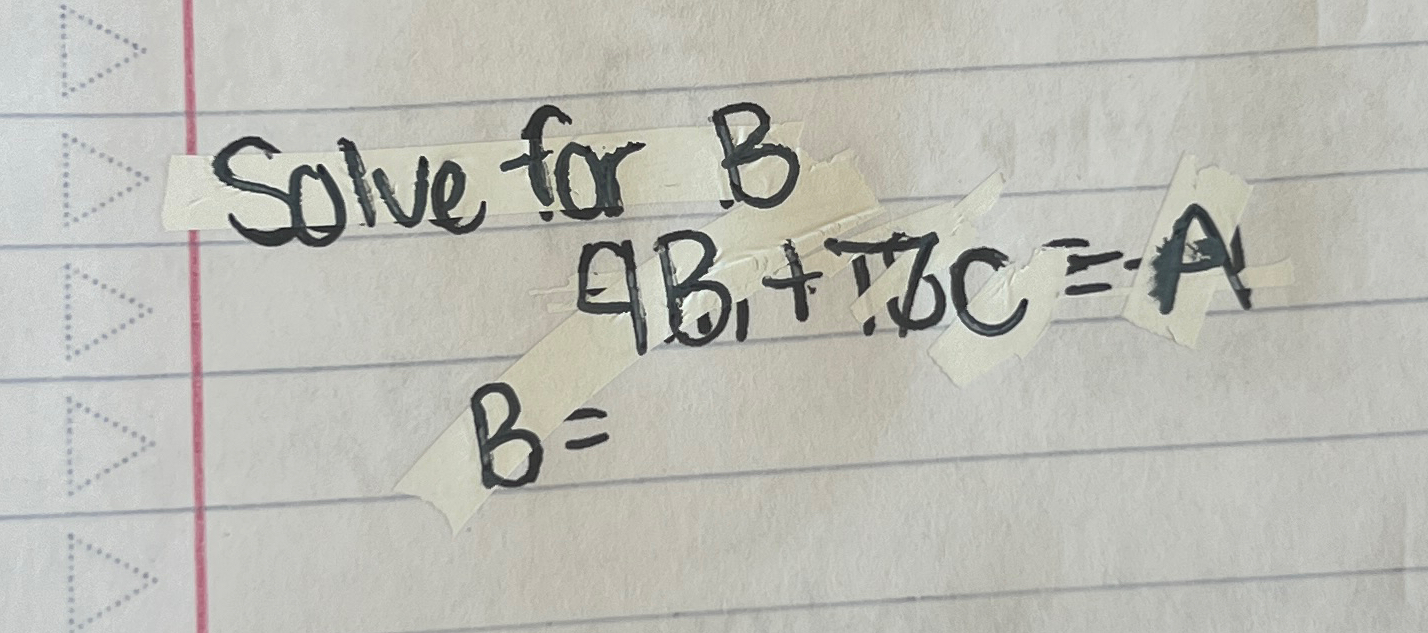 Solve for B
9B + C = A
B =